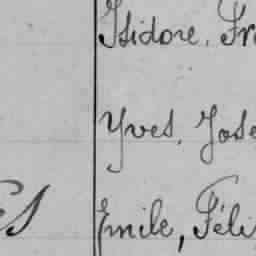 Isidore, Fr
Yves, Jose
ES
Emile, Féli